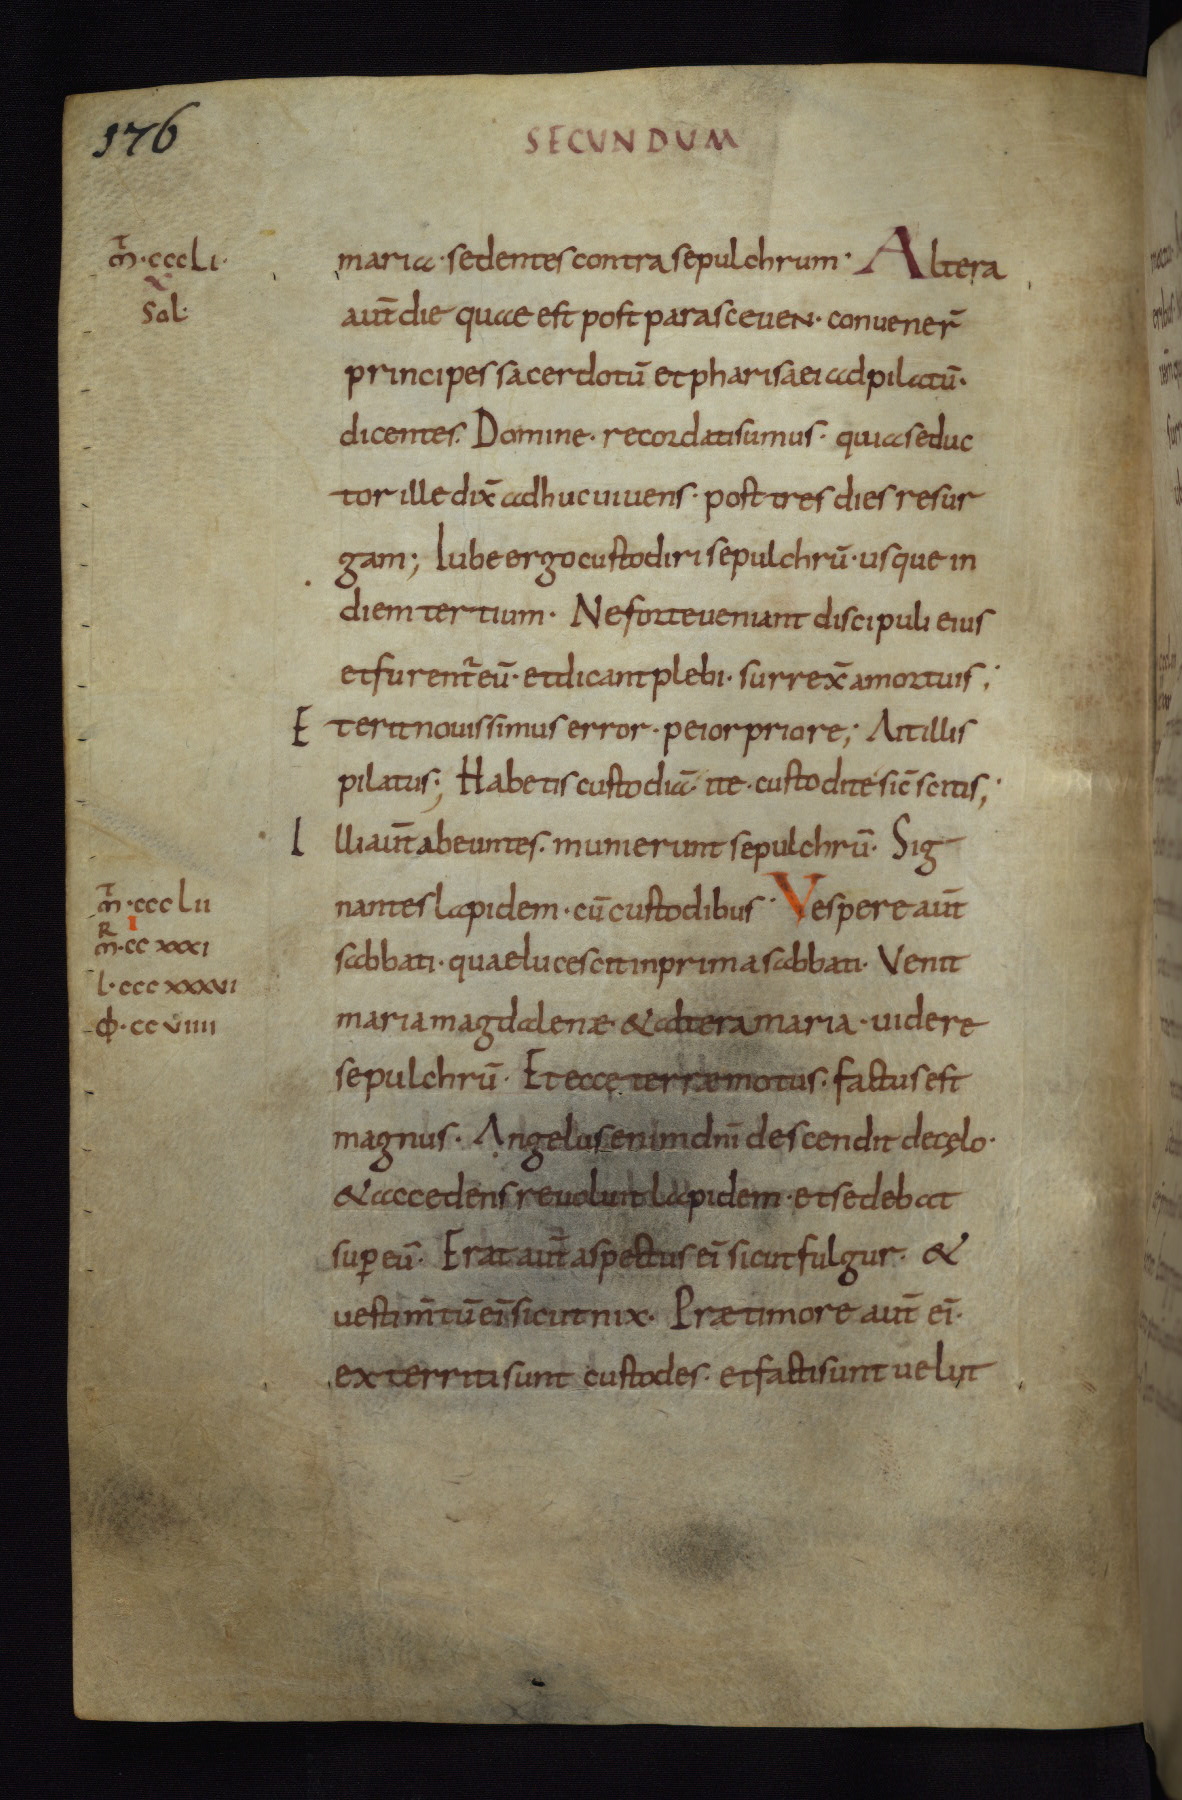 176
SECUNDUM
m̄·cccLI·
X
Sol·
maria· sedentes contra sepulchrum· Altera
aut̄ die quae est post parasceuen· conuener̄
principes sacerdotū et pharisaei ad pilatū·
dicentes· Domine· recordati sumus· quia seduc
tor ille dix̄ adhuc uiuens· post tres dies resur
gam; Iube ergo custodiri sepulchrū· usque in
diem tertium· Ne forte ueniant discipuli eius
et furent̄ eū· et dicant plebi· surrex̄ a mortuis;
Et erit nouissimus error· peior priore; Ait illis
pilatus; Habetis custodiā· ite· custodite sic̄ scitis;
Illi aut̄ abeuntes· munierunt sepulchrū· Sig
nantes lapidem· cū custodibus· Vespere aut̄
m̄·cccLII
I
R
m·cc xxxI
L·ccc xxxvII
ɸ·cc vIIII
sabbati· quae lucescit in prima sabbati· Venit
maria magdalenae· & altera maria· uidere
sepulchrū· Et ecce terrae motus· factus est
magnus· Angelus enim dn̄i descendit de cęlo·
& accedens reuoluit lapidem· et sedebat
suꝑ eū· Erat aut̄ aspectus eī sicut fulgur· &
uestim̄tū eī sicut nix· Prae timore aut̄ eī·
exterriti sunt custodes· et facti sunt uelut